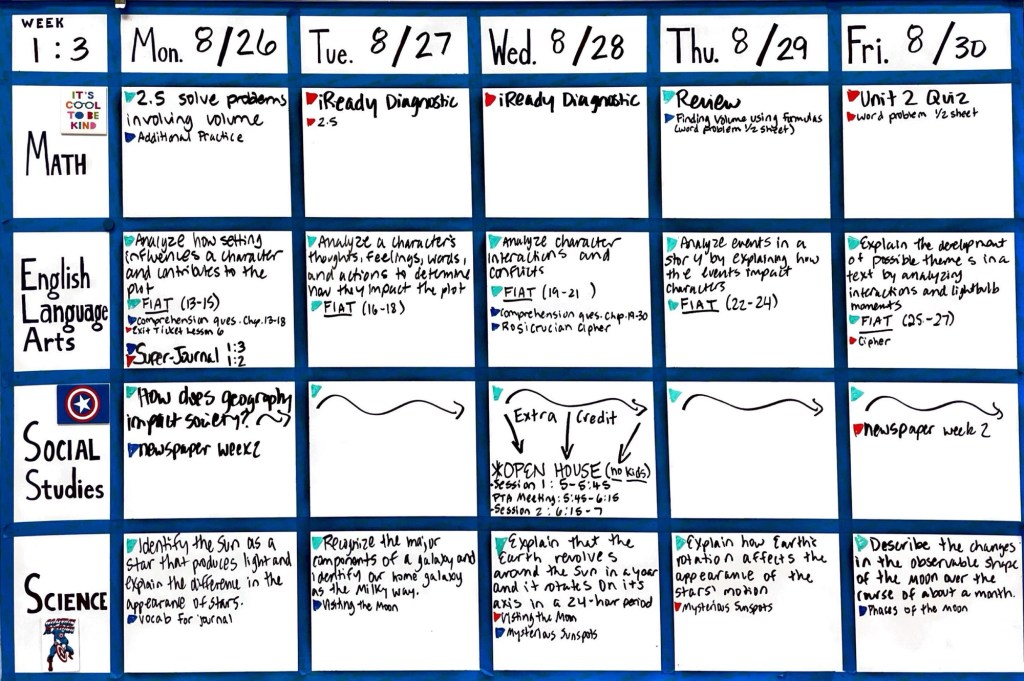 WEEK
1:3
Mon. 8/26
Tue. 8/27
Wed. 8/28
Thu. 8/29
Fri. 8/30
IT'S
COOL
TO BE
KIND
MATH
2.5 solve problems
involving volume
Additional Practice
iReady Diagnostic
2.5
iReady Diagnostic
Review
Finding volume using formulas
(word problem 1/2 sheet)
Unit 2 Quiz
word problem 1/2 sheet
English
Language
Arts
Analyze how setting
influences a character
and contributes to the
plot
FIAT (13-15)
comprehension ques. Chap. 13-18
Exit Ticket Lesson 6
Super-Journal 1:3
1:2
Analyze a character's
thoughts, feelings, words,
and actions to determine
how they impact the plot
FIAT (16-18)
Analyze character
interactions and
conflicts
FIAT (19-21)
comprehension ques. Chap. 19-30
Rosicrucian Cipher
Analyze events in a
story by explaining how
the events impact
characters
FIAT (22-24)
Explain the development
of possible themes in a
text by analyzing
interactions and lightbulb
moments
FIAT (25-27)
Cipher
SOCIAL
Studies
How does geography
impact society?
newspaper week 2
Extra Credit
*OPEN HOUSE (no kids)
-Session 1: 5-5:45
PTA Meeting: 5:45-6:15
-Session 2: 6:15-7
newspaper week 2
SCIENCE
Identify the Sun as a
star that produces light and
explain the difference in the
appearance of stars.
vocab for journal
Recognize the major
components of a galaxy and
identify our home galaxy
as the Milky Way.
Visting the Moon
Explain that the
Earth revolves
around the Sun in a year
and it rotates on it's
axis in a 24-hour period
Visting the Moon
Mysterious Sunspots
Explain how Earth's
rotation affects the
appearance of the
stars' motion
Mysterious Sunspots
Describe the changes
in the observable shape
of the moon over the
course of about a month.
Phases of the Moon